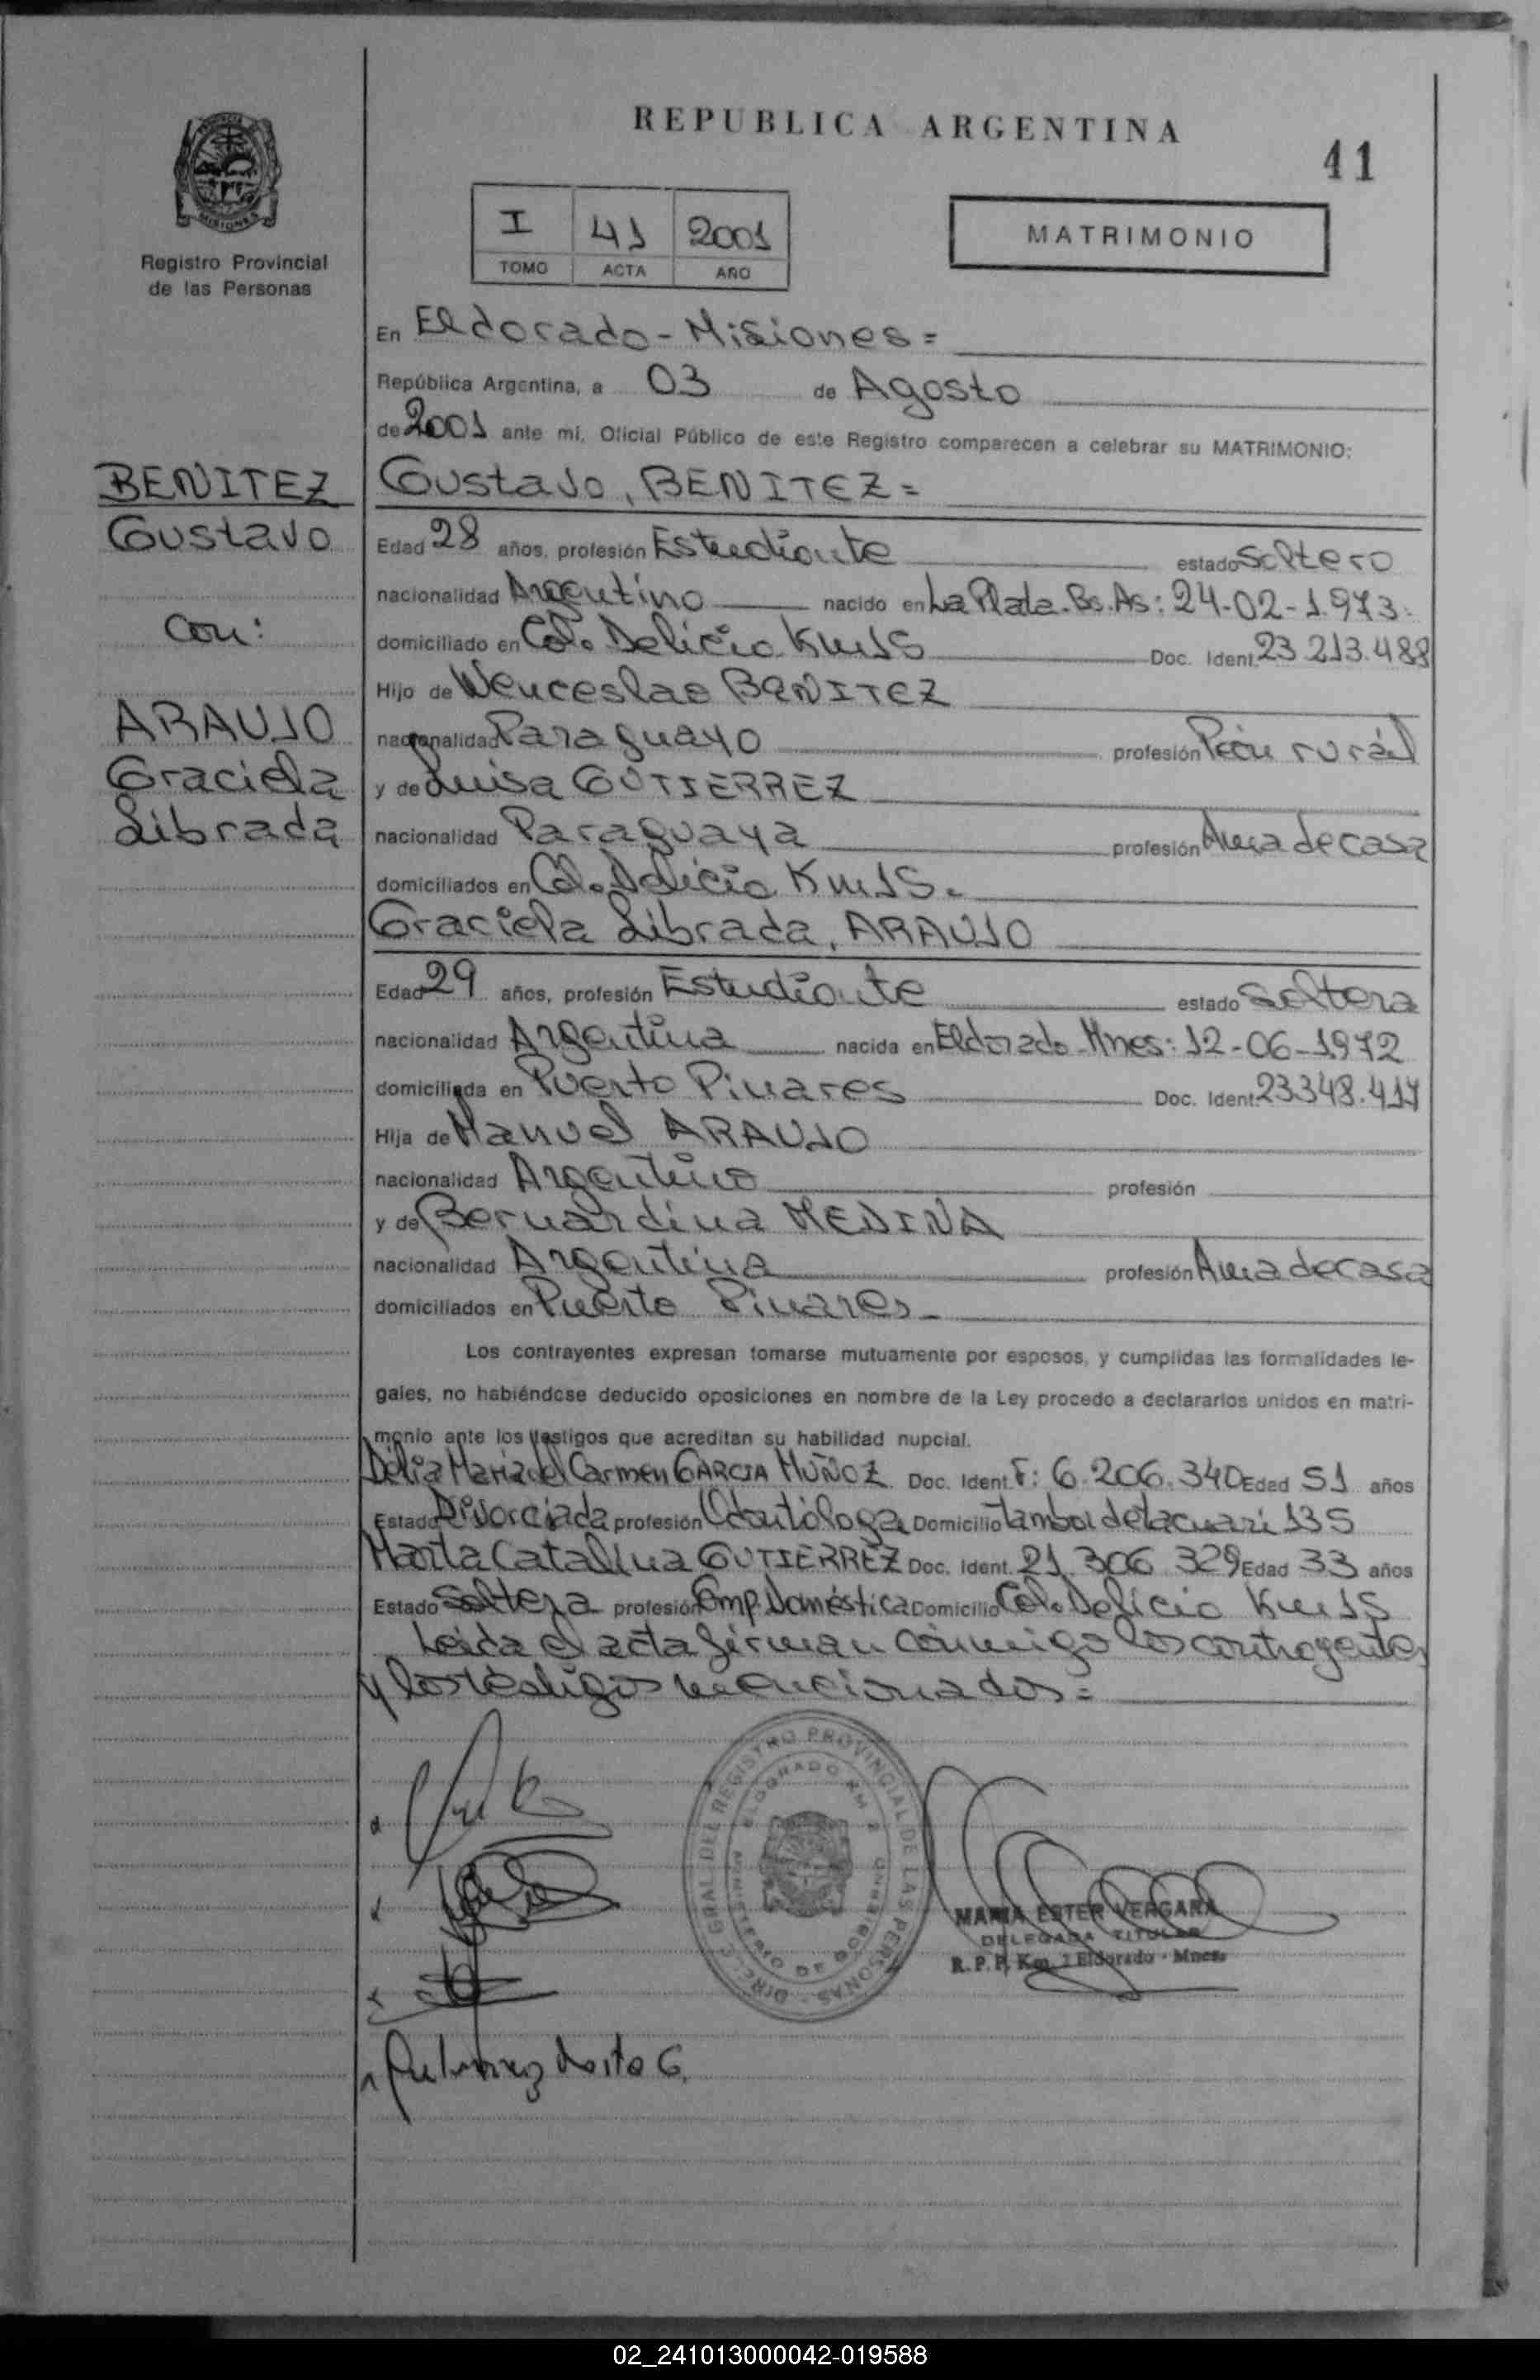 REPUBLICA ARGENTINA
41
PROVINCIA
MISIONES
Registro Provincial
de las Personas
I 41 2001
TOMO ACTA AÑO
MATRIMONIO
En Eldorado - Misiones =
República Argentina, a 03 de Agosto
de 2001 ante mí, Oficial Público de este Registro comparecen a celebrar su MATRIMONIO:
BENITEZ
Gustavo
Con:
ARAUJO
Graciela
Librada
Gustavo, BENITEZ =
Edad 28 años, profesión Estudiante estado Soltero
nacionalidad Argentino nacido en La Plata. Bs. As: 24-02-1.973.
domiciliado en Col. Delicia Km 15 Doc. Ident. 23.213.488
Hijo de Wenceslao BENITEZ
nacionalidad Paraguayo profesión Peón rurál
y de Luisa GUTIERREZ
nacionalidad Paraguaya profesión Ama de casa
domiciliados en Col. Delicia Km 15.
Graciela Librada, ARAUJO
Edad 29 años, profesión Estudiante estado Soltera
nacionalidad Argentina nacida en Eldorado - Mnes: 12-06-1972
domiciliada en Puerto Pinares Doc. Ident. 23.348.417
Hija de Manuel ARAUJO
nacionalidad Argentino profesión
y de Bernardina MEDINA
nacionalidad Argentina profesión Ama de casa
domiciliados en Puerto Pinares -
Los contrayentes expresan tomarse mutuamente por esposos, y cumplidas las formalidades le-
gales, no habiéndose deducido oposiciones en nombre de la Ley procedo a declararlos unidos en matri-
monio ante los testigos que acreditan su habilidad nupcial.
Delia Maria del Carmen GARCIA MUÑOZ Doc. Ident. F: 6.206.340 Edad 51 años
Estado Divorciada profesión Odontóloga Domicilio Tambor de tacuari 135
Marta Catalina GUTIERREZ Doc. Ident. 21.306.329 Edad 33 años
Estado Soltera profesión Emp. Doméstica Domicilio Col. Delicia Km 15
Leida el acta firman conmigo los contrayentes
y los testigos mencionados =
DIREC. GRAL. DEL REGISTRO PROVINCIAL DE LAS PERSONAS
ELDORADO KM 2
MINISTERIO DE GOBIERNO
MARIA ESTER VERGARA
DELEGADA TITULAR
R. P. P. Km. 2 Eldorado - Mnes.
Gutierrez Marta C.
02_241013000042-019588